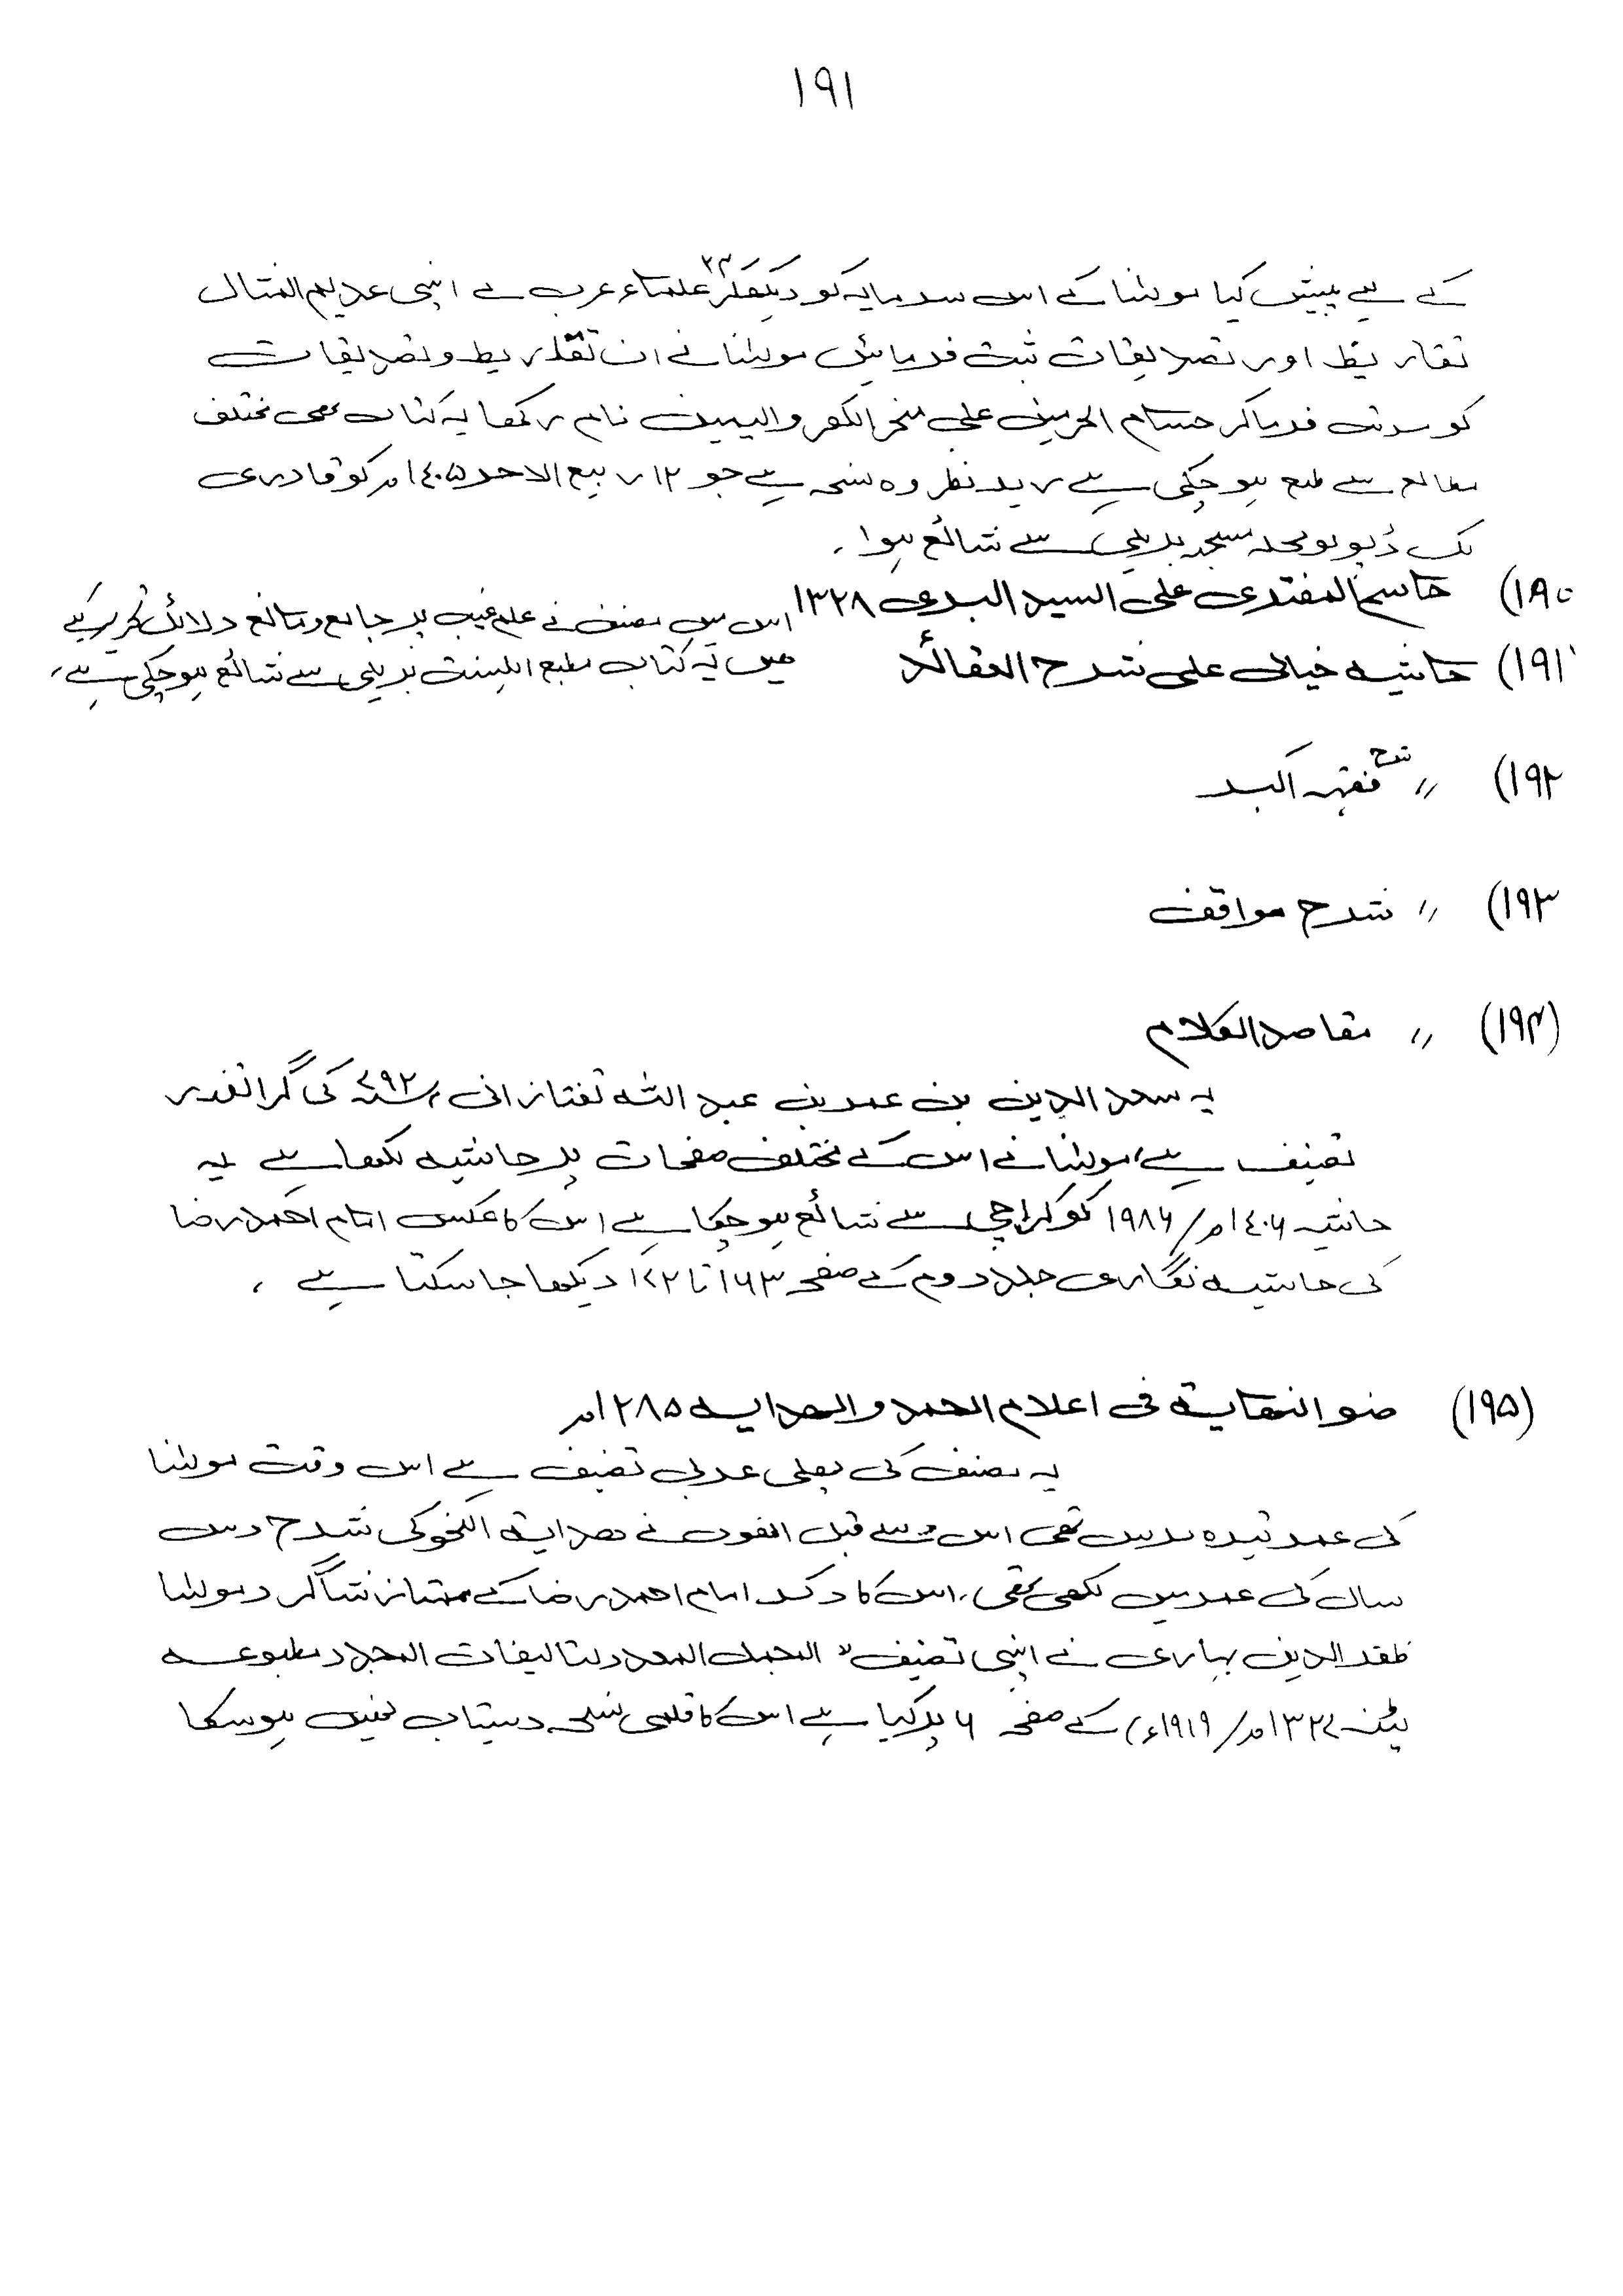 ۱۹۱
کے لیے پیش کیا مولٰنا کے اس سرمایہ کو دیکھکر ۳۳ علماء عرب نے اپنی عدیم المثال
تقاریظ اور تصدیقات ثبت فرمائیں مولٰنا نے ان تقاریظ و تصدیقات
کو مرتب فرماکر حسام الحرمین علی منحر الکفر والیمین نام رکھا یہ کتاب بھی مختلف
مطابع سے طبع ہو چکی ہے زیر نظر وہ نسخہ ہے جو ۱۲ ربیع الاخر ۱۴۰۵ھ کو قادری
بک ڈپو نومحلہ مسجد بریلی سے شائع ہوا ۔
۱۹۰) حاسم المفتری علی السید البری ۱۳۲۸ اس میں مصنف نے علم غیب پر جامع و مانع دلائل تحریر کیے
ہیں یہ کتاب مطبع اہلسنت بریلی سے شائع ہو چکی ہے،
۱۹۱) حاشیہ خیالی علی شرح العقائد
۱۹۲) 〃 شرح فقہ اکبر
۱۹۳) 〃 شرح مواقف
(۱۹۴) 〃 مقاصد الکلام
یہ سعد الدین بن عمر بن عبد اللہ تفتازانی م ۷۹۲ھ کی گرانقدر
تصنیف ہے، مولٰنا نے اس کے مختلف صفحات پر حاشیہ لکھا ہے یہ
حاشیہ ۱۴۰۶ھ/۱۹۸۶ کو کراچی سے شائع ہو چکا ہے اس کا عکس امام احمد رضا
کی حاشیہ نگاری جلد دوم کے صفحہ ۱۶۳ تا ۱۷۲ دیکھا جا سکتا ہے ،
(۱۹۵) ضو النھایۃ فی اعلام الحمد والھدایہ ۱۲۸۵ھ
یہ مصنف کی پہلی عربی تصنیف ہے اس وقت مولٰنا
کی عمر تیرہ برس تھی اس سے قبل انھوں نے ھدایۃ النحو کی شرح دس
سال کی عمر میں لکھی تھی، اس کا ذکر امام احمد رضا کے ممتاز شاگرد مولٰنا
ظفر الدین بہاری نے اپنی تصنیف " المجمل المعدد لتالیفات المجدد مطبوعہ
پٹنہ ۱۳۲۷ھ/۱۹۱۹ء) کے صفحہ ۶ پر کیا ہے اس کا قلمی نسخہ دستیاب نہیں ہوسکا